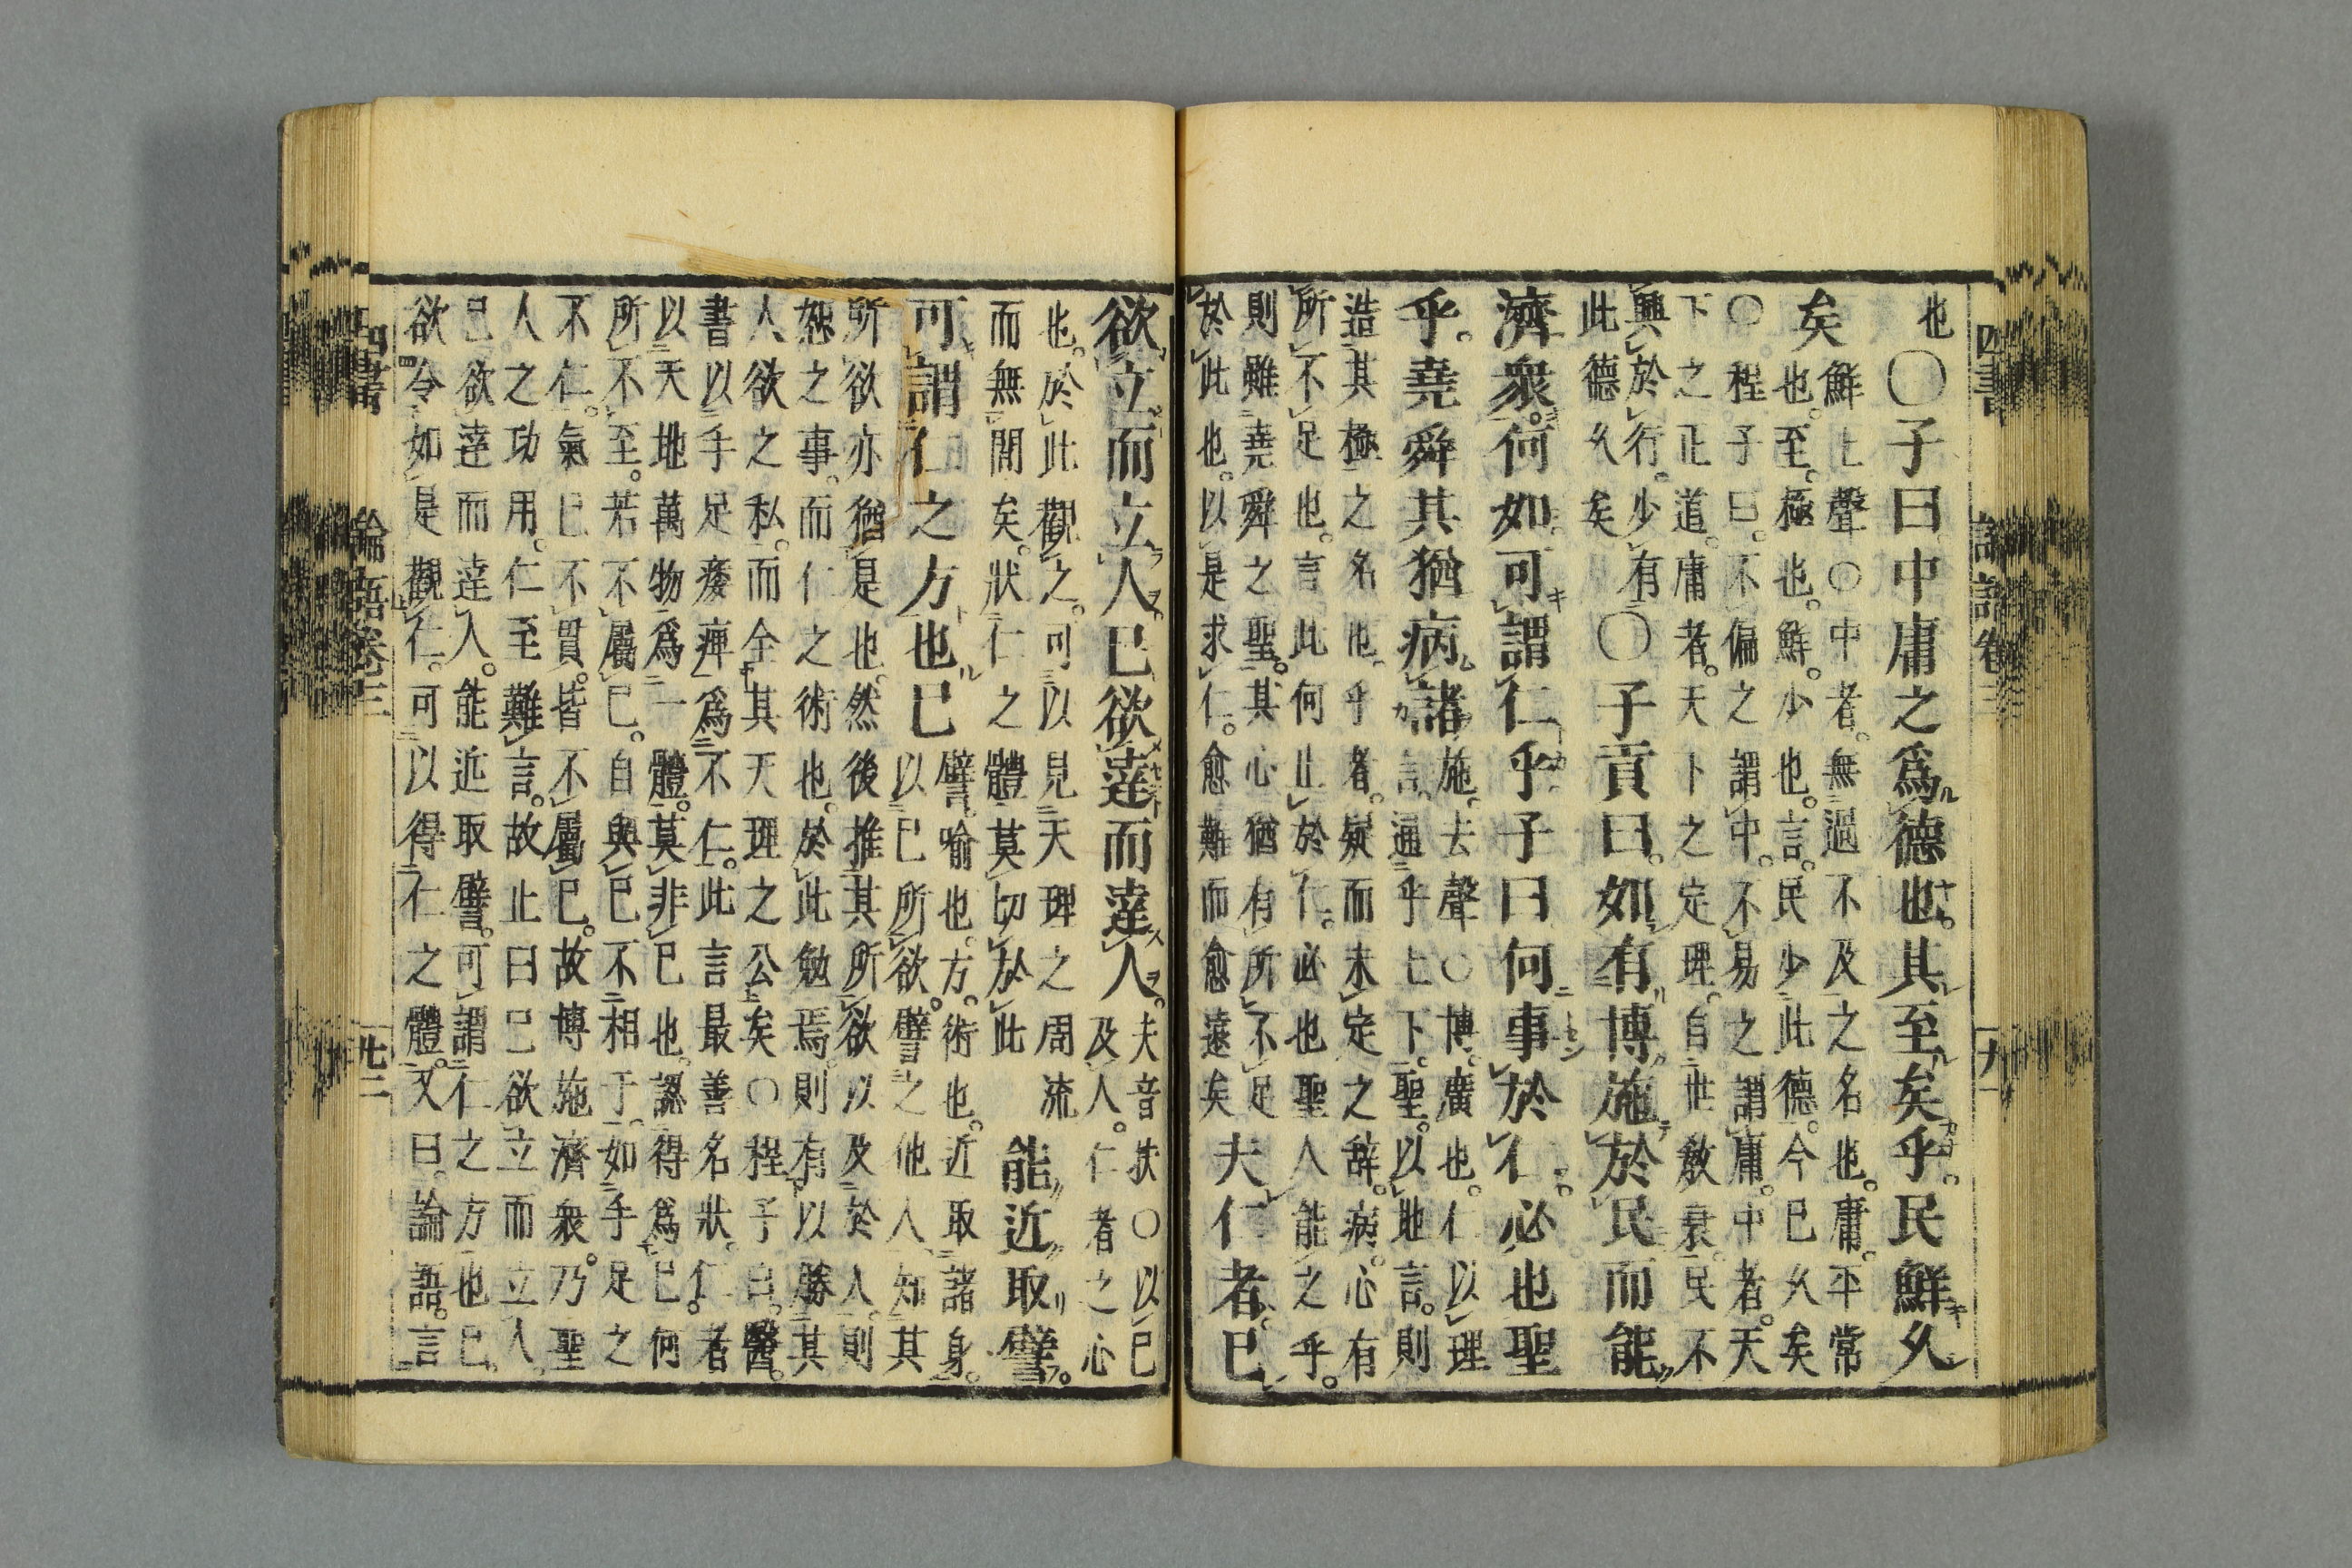 四書
論語卷三
也〇子曰中庸之爲德也其至矣乎民鮮久
矣
鮮上聲〇中者無過不及之名也庸平常
也至極也鮮少也言民少此德今已久矣
〇程子曰不偏之謂中不易之謂庸中者天
下之正道庸者天下之定理自世敎衰民不
興於行少有
此德久矣
〇子貢曰如有博施於民而能
濟衆何如可謂仁乎子曰何事於仁必也聖
乎堯舜其猶病諸
施去聲〇博廣也仁以理
言通乎上下聖以地言則
造其極之名也乎者疑而未定之辭病心有
所不足也言此何止於仁必也聖人能之乎
則雖堯舜之聖其心猶有所不足
於此也以是求仁愈難而愈遠矣
夫仁者已
欲立而立人已欲達而達人
夫音扶〇以已
及人仁者之心
也於此觀之可以見天理之周流
而無閒矣狀仁之體莫切於此
能近取譬
可謂仁之方也已
譬喻也方術也近取諸身
以已所欲譬之他人知其
所欲亦猶是也然後推其所欲以及於人則
恕之事而仁之術也於此勉焉則有以勝其
人欲之私而全其天理之公矣〇程子曰醫
書以手足痿痺爲不仁此言最善名狀仁者
以天地萬物爲一體莫非已也認得爲已何
所不至若不屬已自與已不相干如手足之
不仁氣已不貫皆不屬已故博施濟衆乃聖
人之功用仁至難言故止曰已欲立而立人
已欲達而達人能近取譬可謂仁之方也已
欲令如是觀仁可以得仁之體又曰論語言
四書
論語卷三